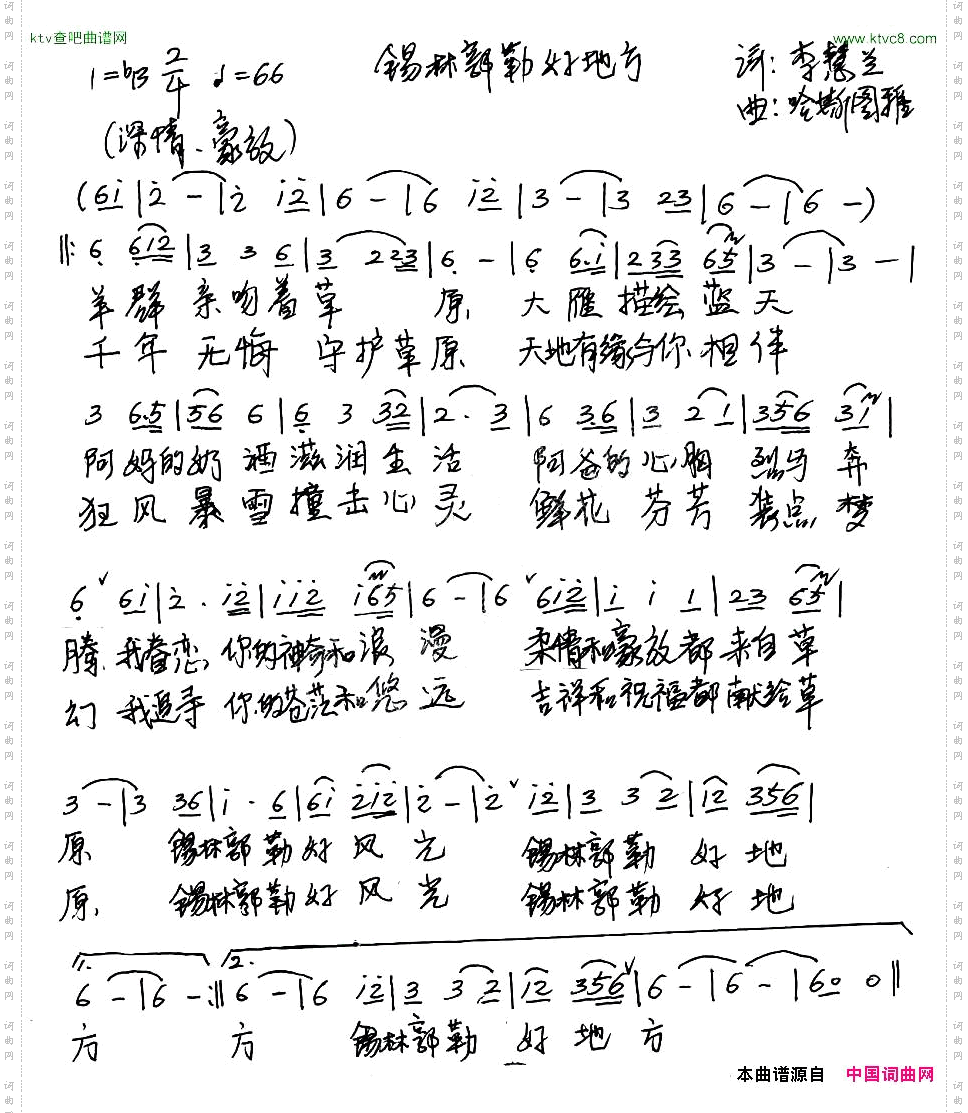 ktv查吧曲谱网
www.ktvc8.com
锡林郭勒好地方
1=♭B 2/4 ♩=66
词:李慧兰
曲:哈斯图雅
(深情、豪放)
(6i|2 - |2 i2|6 - |6 i2|3 - |3 23|6 - |6 -)
‖:6 612|3 3 6|3 223|6 - |6 6·i|233 65|3 - |3 - |
羊群 亲吻着草 原 大雁描绘蓝天
千年 无悔 守护草原 天地有缘与你相伴
3 6·5|56 6|6 3 332|2· 3|6 36|3 2 1|356 31|
阿妈的奶酒滋润生活 阿爸的心胸 烈马奔
狂风暴雪撞击心灵 鲜花芬芳 装点梦
6 ∨ 6i|2· i2|ii2 i65|6 - |6 ∨ 6i2|i i 1|23 65|
腾 我眷恋 你的神奇和浪漫 柔情和豪放都来自草
幻 我追寻 你的苍茫和悠远 吉祥和祝福都献给草
3 - |3 36|i· 6|6i 2i2|2 - |2 ∨ i2|3 3 2|i2 356|
原 锡林郭勒好风光 锡林郭勒 好地
原 锡林郭勒好风光 锡林郭勒 好地
1. 2.
6 - |6 -:‖6 - |6 i2|3 3 2|i2 356 ∨|6 - |6 - |60 0‖
方 方 锡林郭勒 好地方
本曲谱源自 中国词曲网